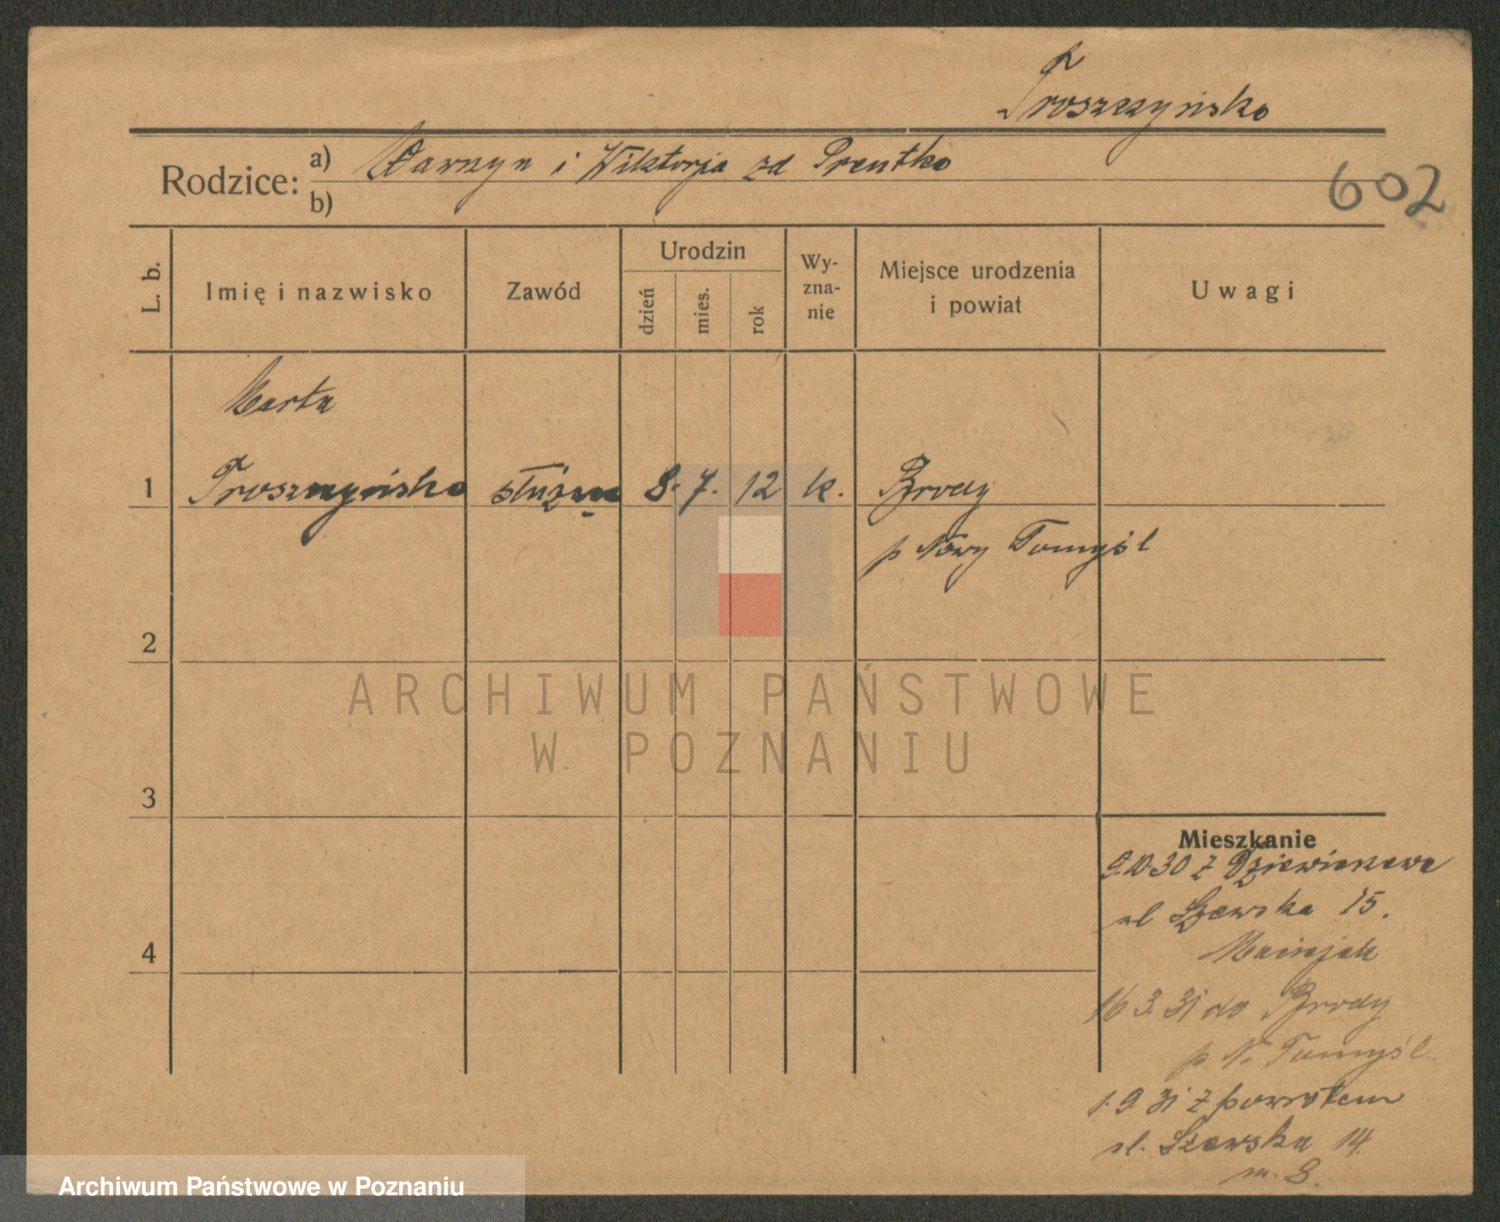 Troszczyńska
Rodzice: a) Wawrzyn i Wiktorja zd Prentka
b)
602
L. b. Imię i nazwisko Zawód Urodzin dzień mies. rok Wyznanie Miejsce urodzenia i powiat Uwagi
Marta
1 Troszczyńska służąca 8. 7. 12 k. Brody
p Nowy Tomyśl
2
ARCHIWUM PAŃSTWOWE
W POZNANIU
3
Mieszkanie
9.10.30 z
ul Szewska 15.
4
16 3. 31 do Brody
p N. Tomyśl
1. 9. 31 z powrotem
ul. Szewska 14.
m. 8.
Archiwum Państwowe w Poznaniu